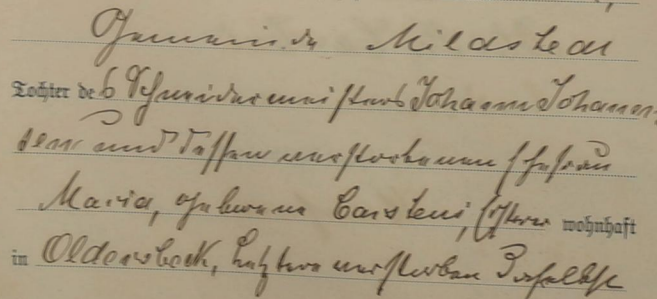 Gemeinde Mildstedt
Tochter des Schneidermeisters Johann Johann-
sen und dessen verstorbenen Ehefrau
Maria, geborene Carstens, Ersterer wohnhaft
in Oldersbek, Letztere verstorben daselbst